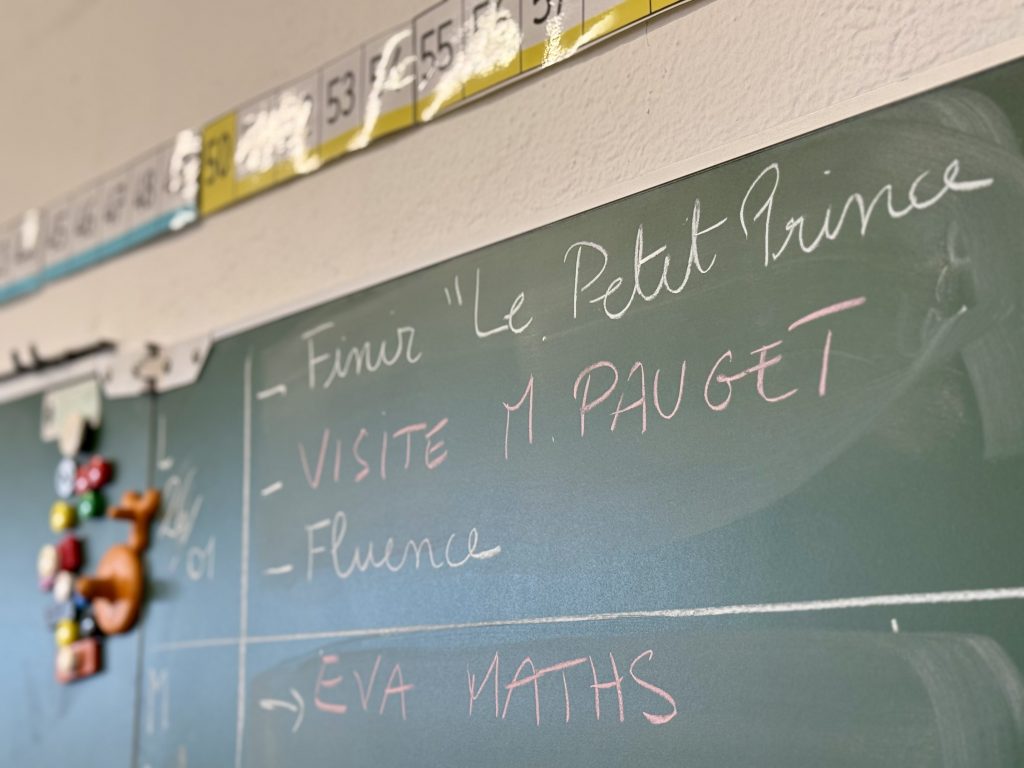 45 46 47 48 50 53 54 55 56 57
- Finir "Le Petit Prince
- VISITE M. PAUGET
- Fluence
L
26/
01
M
→ EVA MATHS